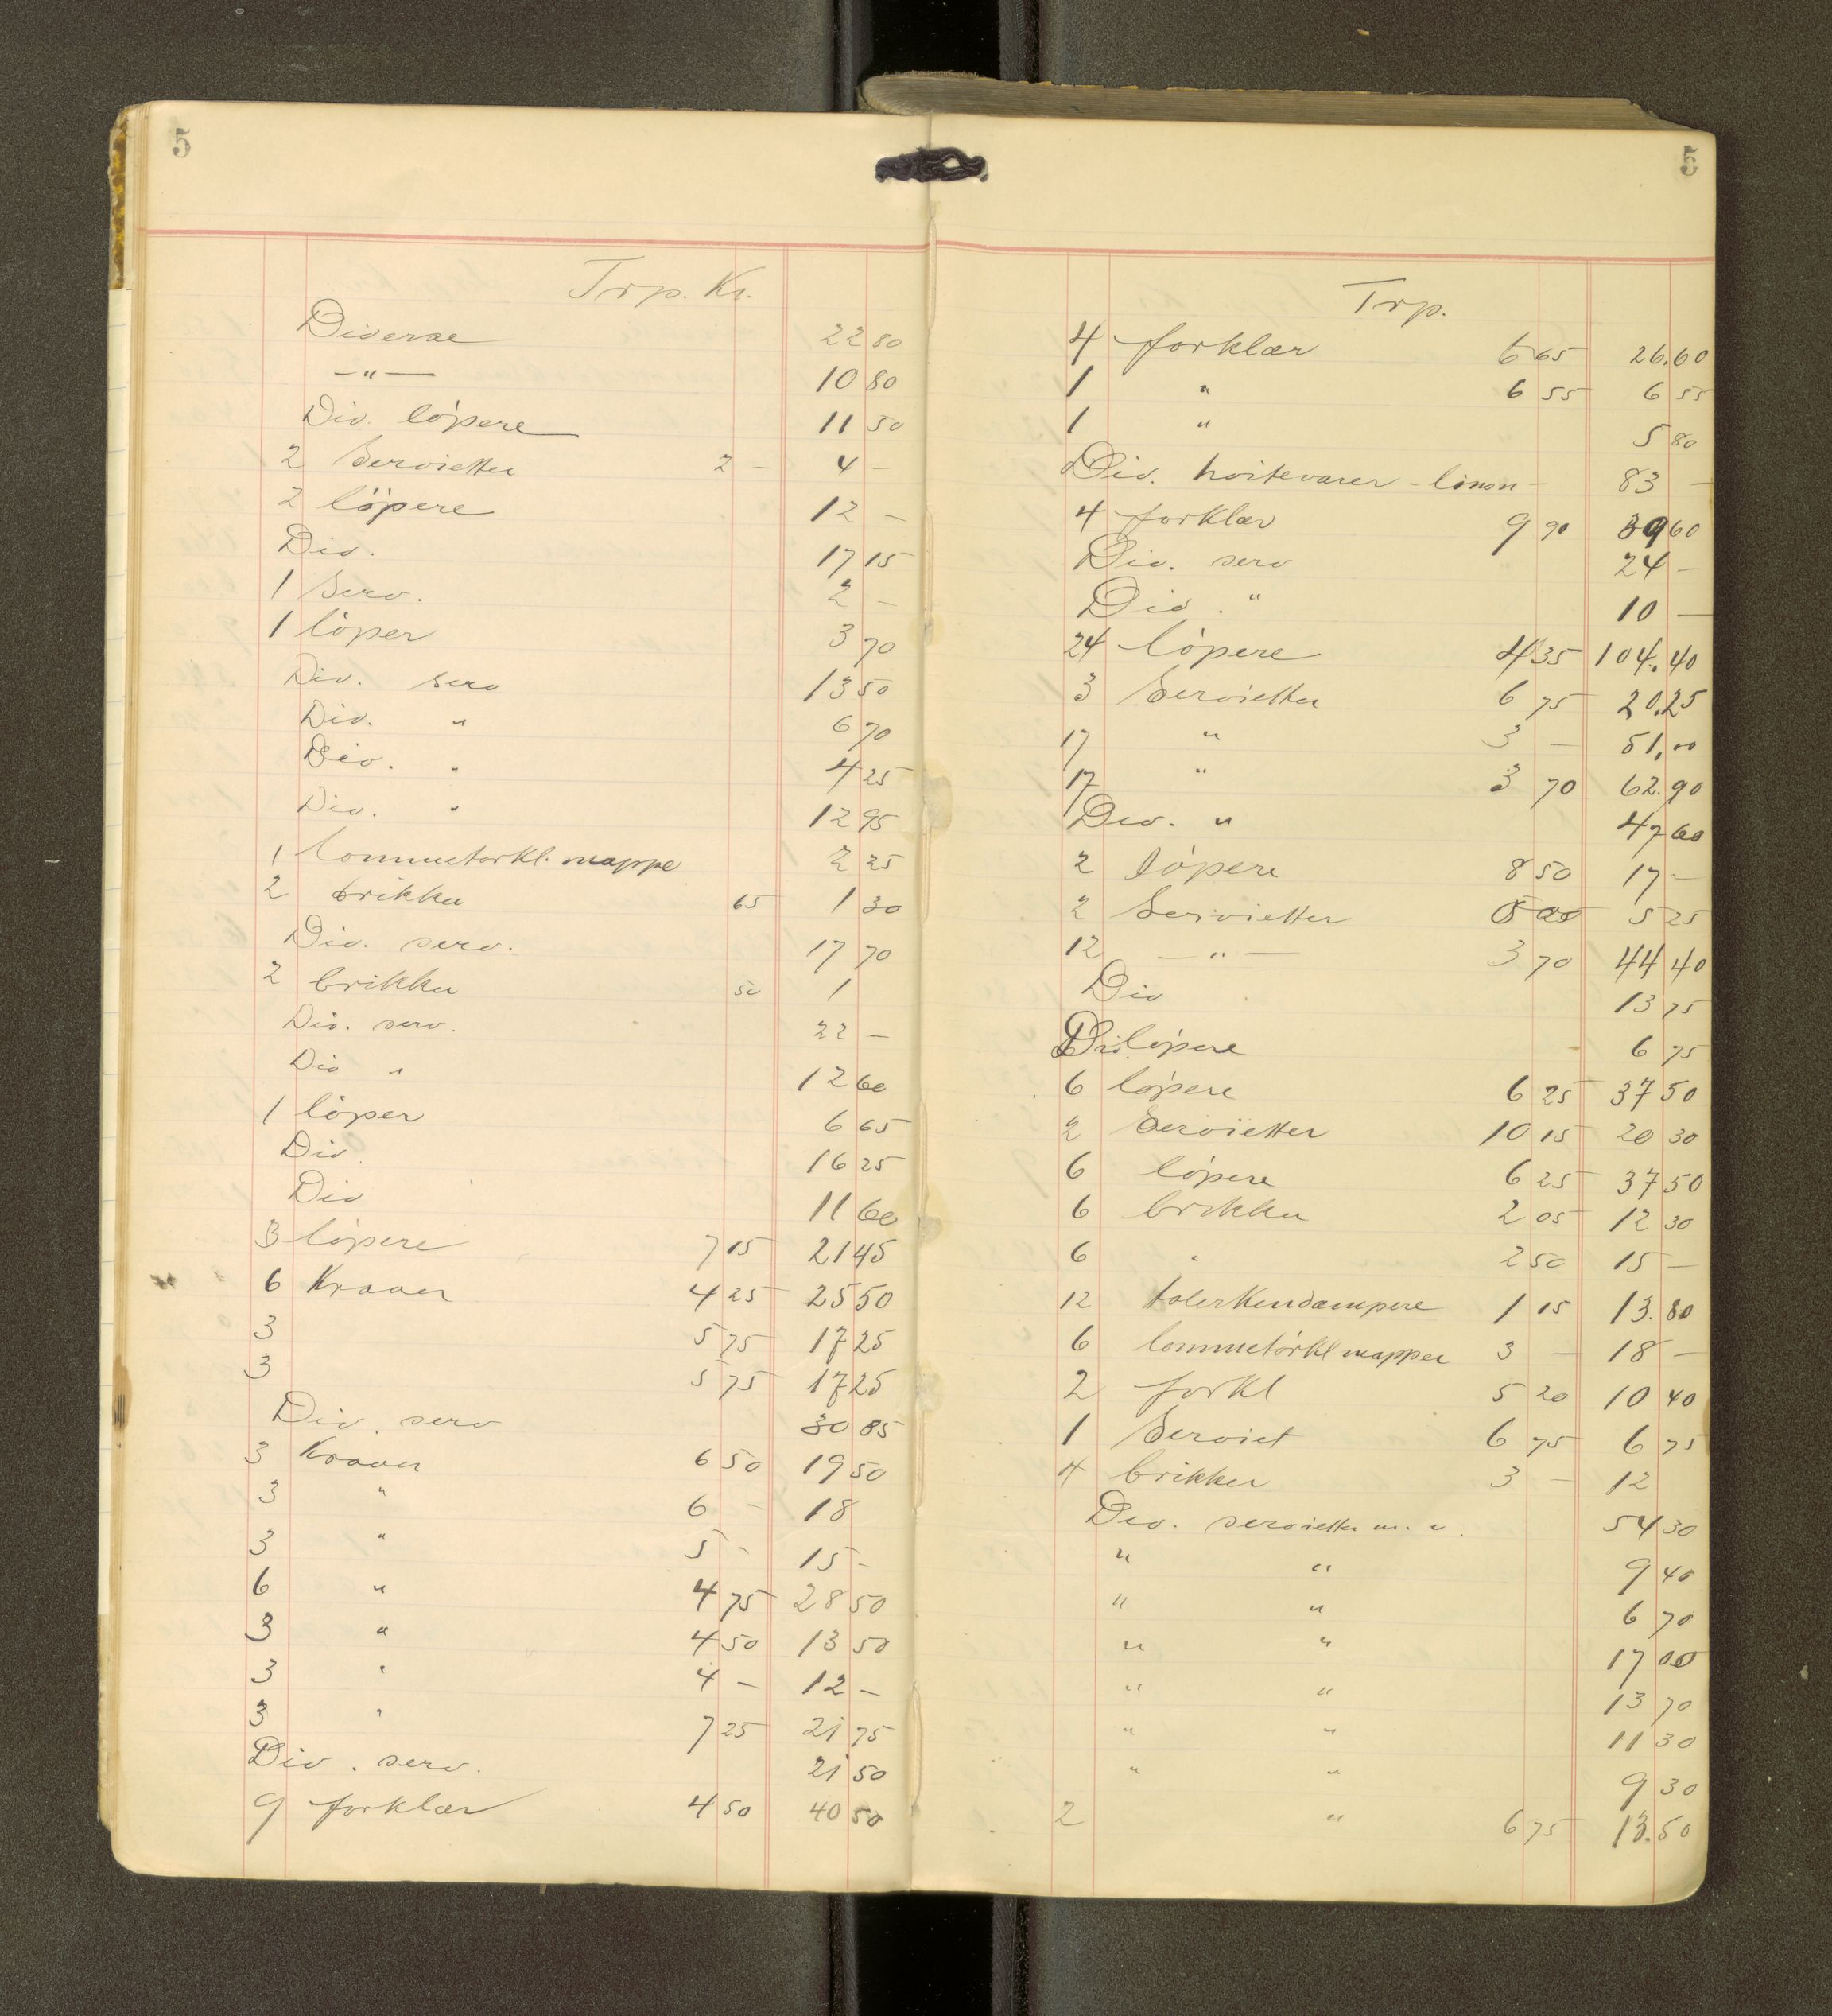 5
Trp. Kr.
Diverse 22 80
— " — 10 80
Div. löpere 11 50
2 Servietter 2 – 4 –
2 löpere 12 –
Div. 17 15
1 Serv. 2 –
1 löper 3 70
Div. serv 13 50
Div. " 6 70
Div. " 4 25
Div. " 12 95
1 lommetörkl. mappe 2 25
2 brikker 65 1 30
Div. serv. 17 70
2 brikker 50 1
Div. serv. 22 –
Div " 12 60
1 löper 6 65
Div 16 25
Div 11 60
3 löpere 7 15 21 45
6 Kraver 4 25 25 50
3 5 75 17 25
3 5 75 17 25
Div. serv 30 85
3 Kraver 6 50 19 50
3 " 6 – 18
3 " 5 - 15 -
6 " 4 75 28 50
3 " 4 50 13 50
3 " 4 – 12 –
3 " 7 25 21 75
Div. serv. 21 50
9 forklær 4 50 40 50
5
Trp.
4 forklær 6 65 26.60
1 " 6 55 6 55
1 " 5 80
Div. hvitevarer - 83 –
4 forklær 9 90 39 60
Div. serv 24 –
Div. " 10 –
24 löpere 4 35 104.40
3 Servietter 6 75 20.25
17 " 3 – 51,00
17 " 3 70 62.90
Div. " 47 60
2 löpere 8 50 17 –
2 Servietter 5 25
12 — " — 3 70 44 40
Div 13 75
Div. löpere 6 75
6 löpere 6 25 37 50
2 Servietter 10 15 20 30
6 löpere 6 25 37 50
6 brikker 2 05 12 30
6 " 2 50 15 –
12 talerkendæmpere 1 15 13.80
6 lommetörkl mapper 3 – 18 –
2 forkl 5 20 10 40
1 Serviet 6 75 6 75
4 brikker 3 – 12
Div. servietter m. v. 54 30
" " 9 40
" " 6 70
" " 17 00
" " 13 70
" " 11 30
" " 9 30
2 " 6 75 13.50